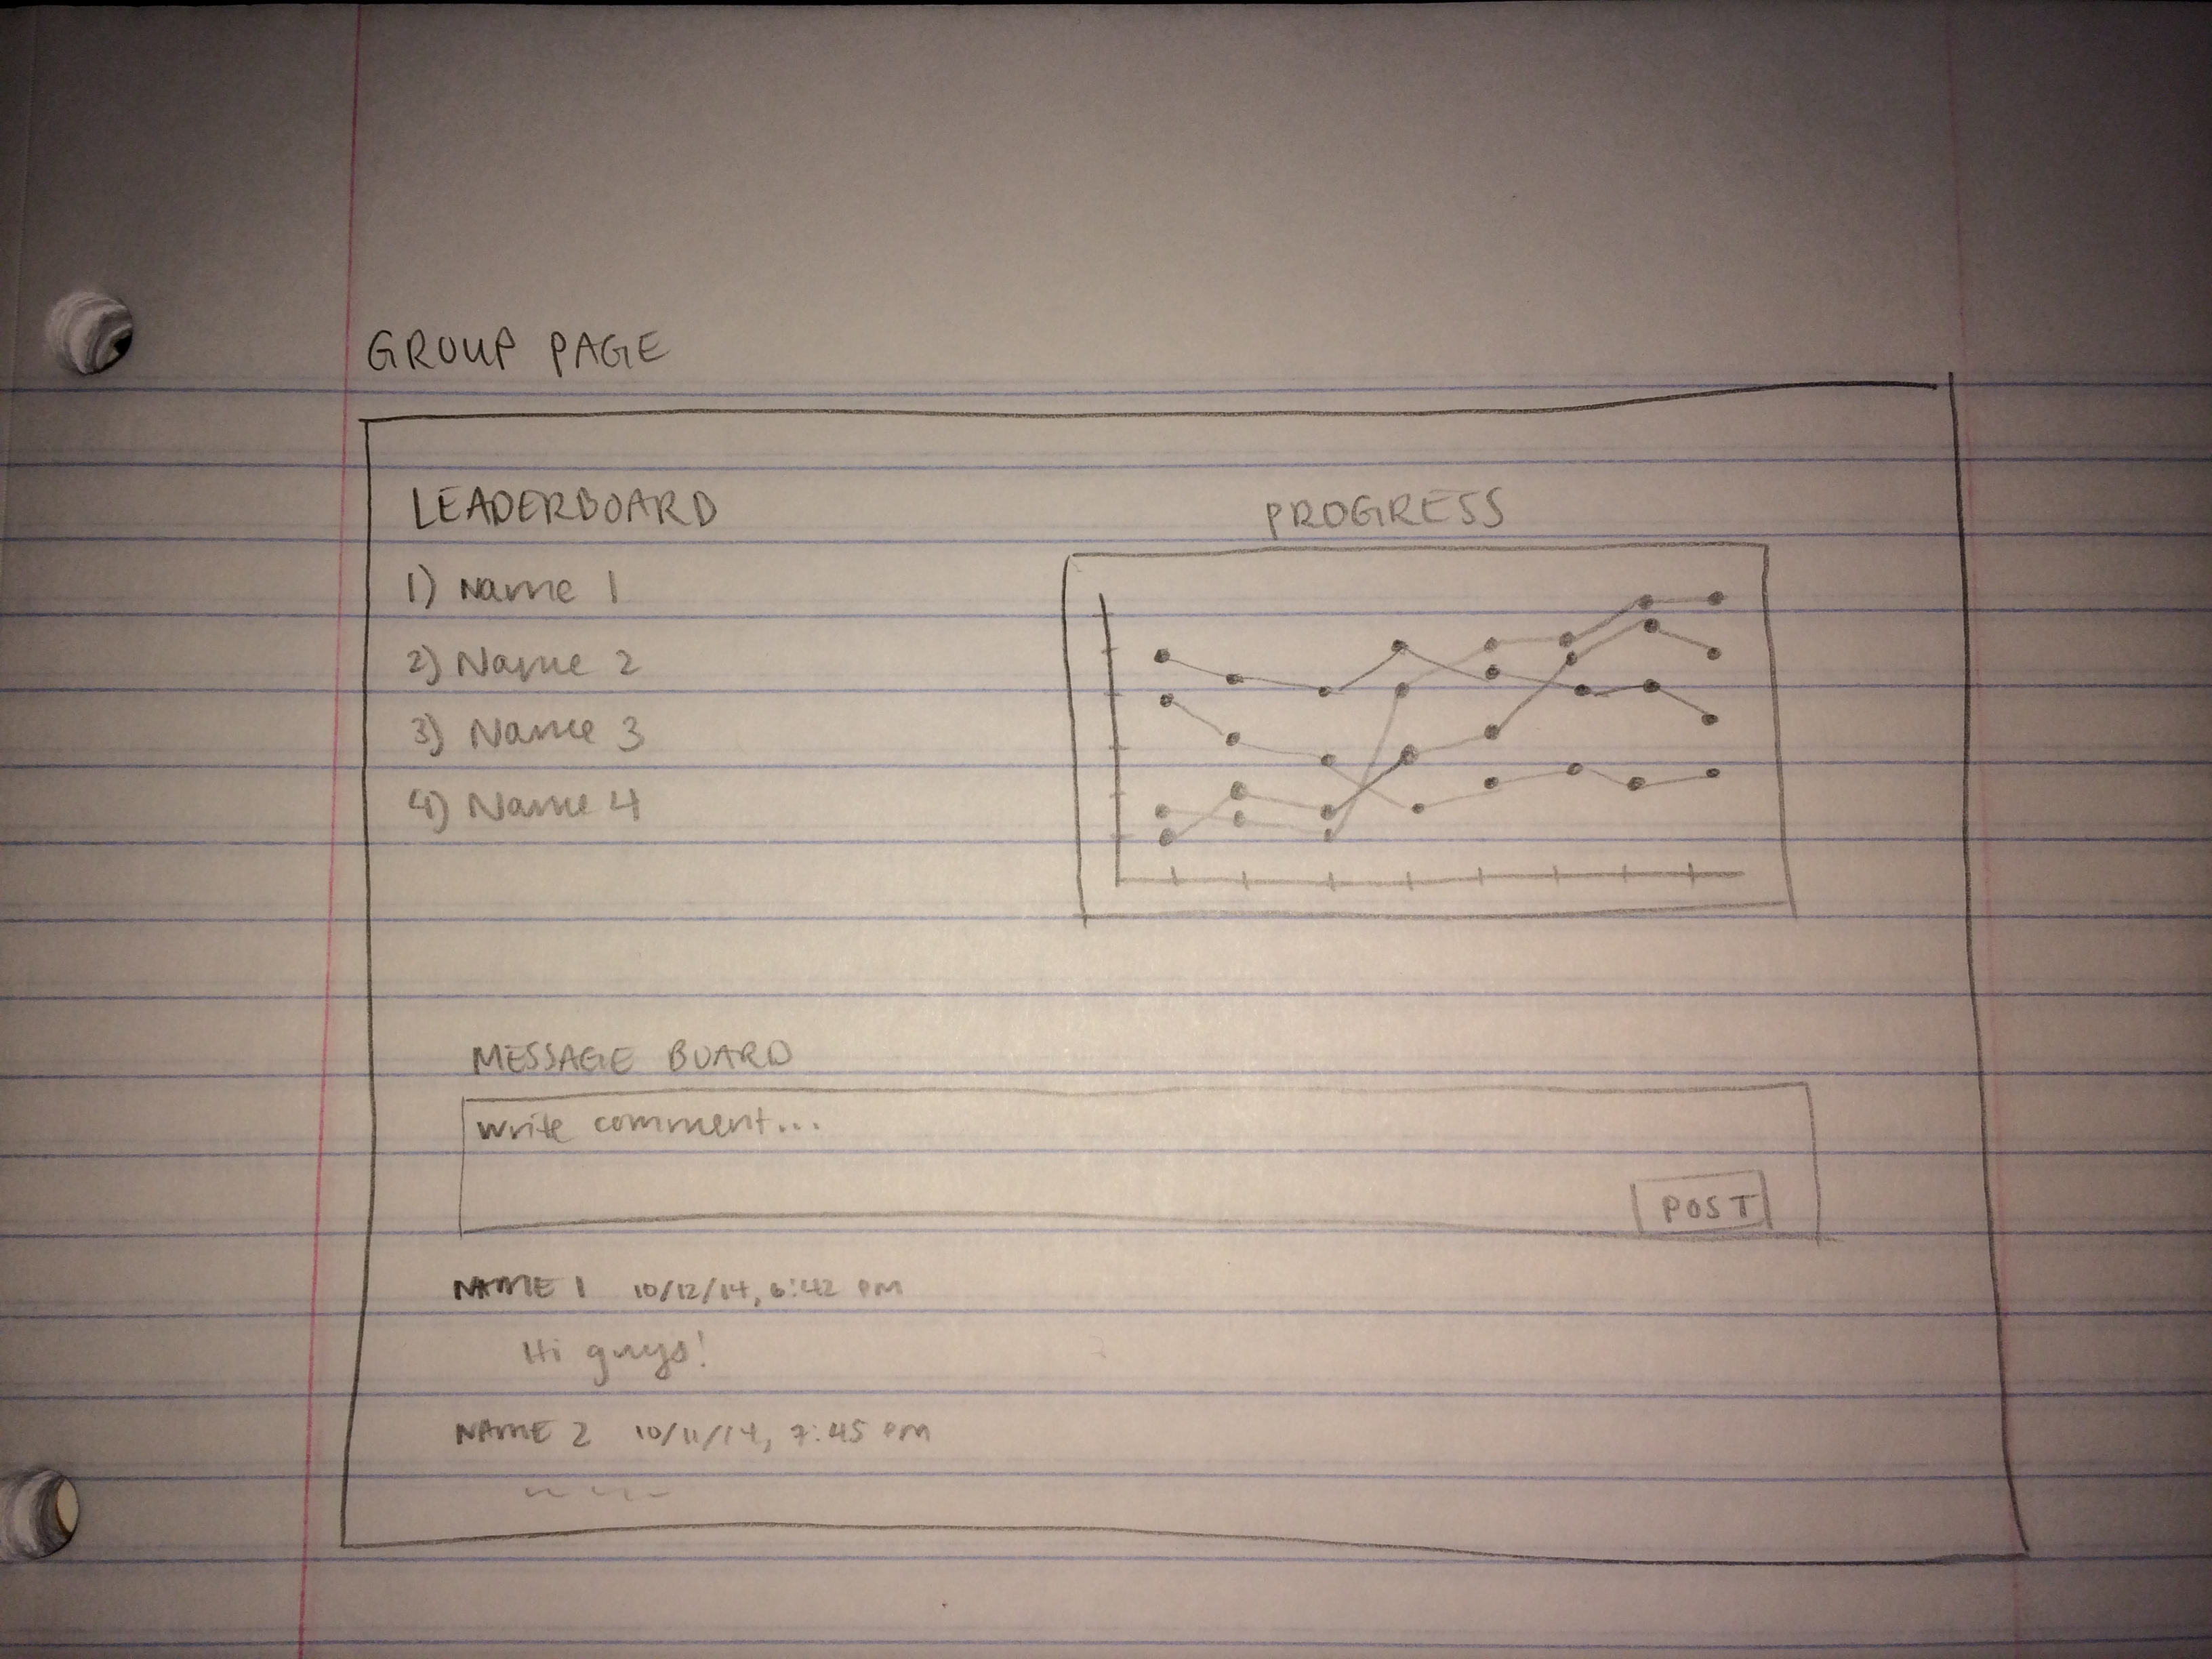 GROUP PAGE
LEADERBOARD
1) Name 1
2) Name 2
3) Name 3
4) Name 4
PROGRESS
MESSAGE BOARD
write comment...
POST
NAME 1 10/12/14, 6:42 PM
Hi guys!
NAME 2 10/11/14, 7:45 PM